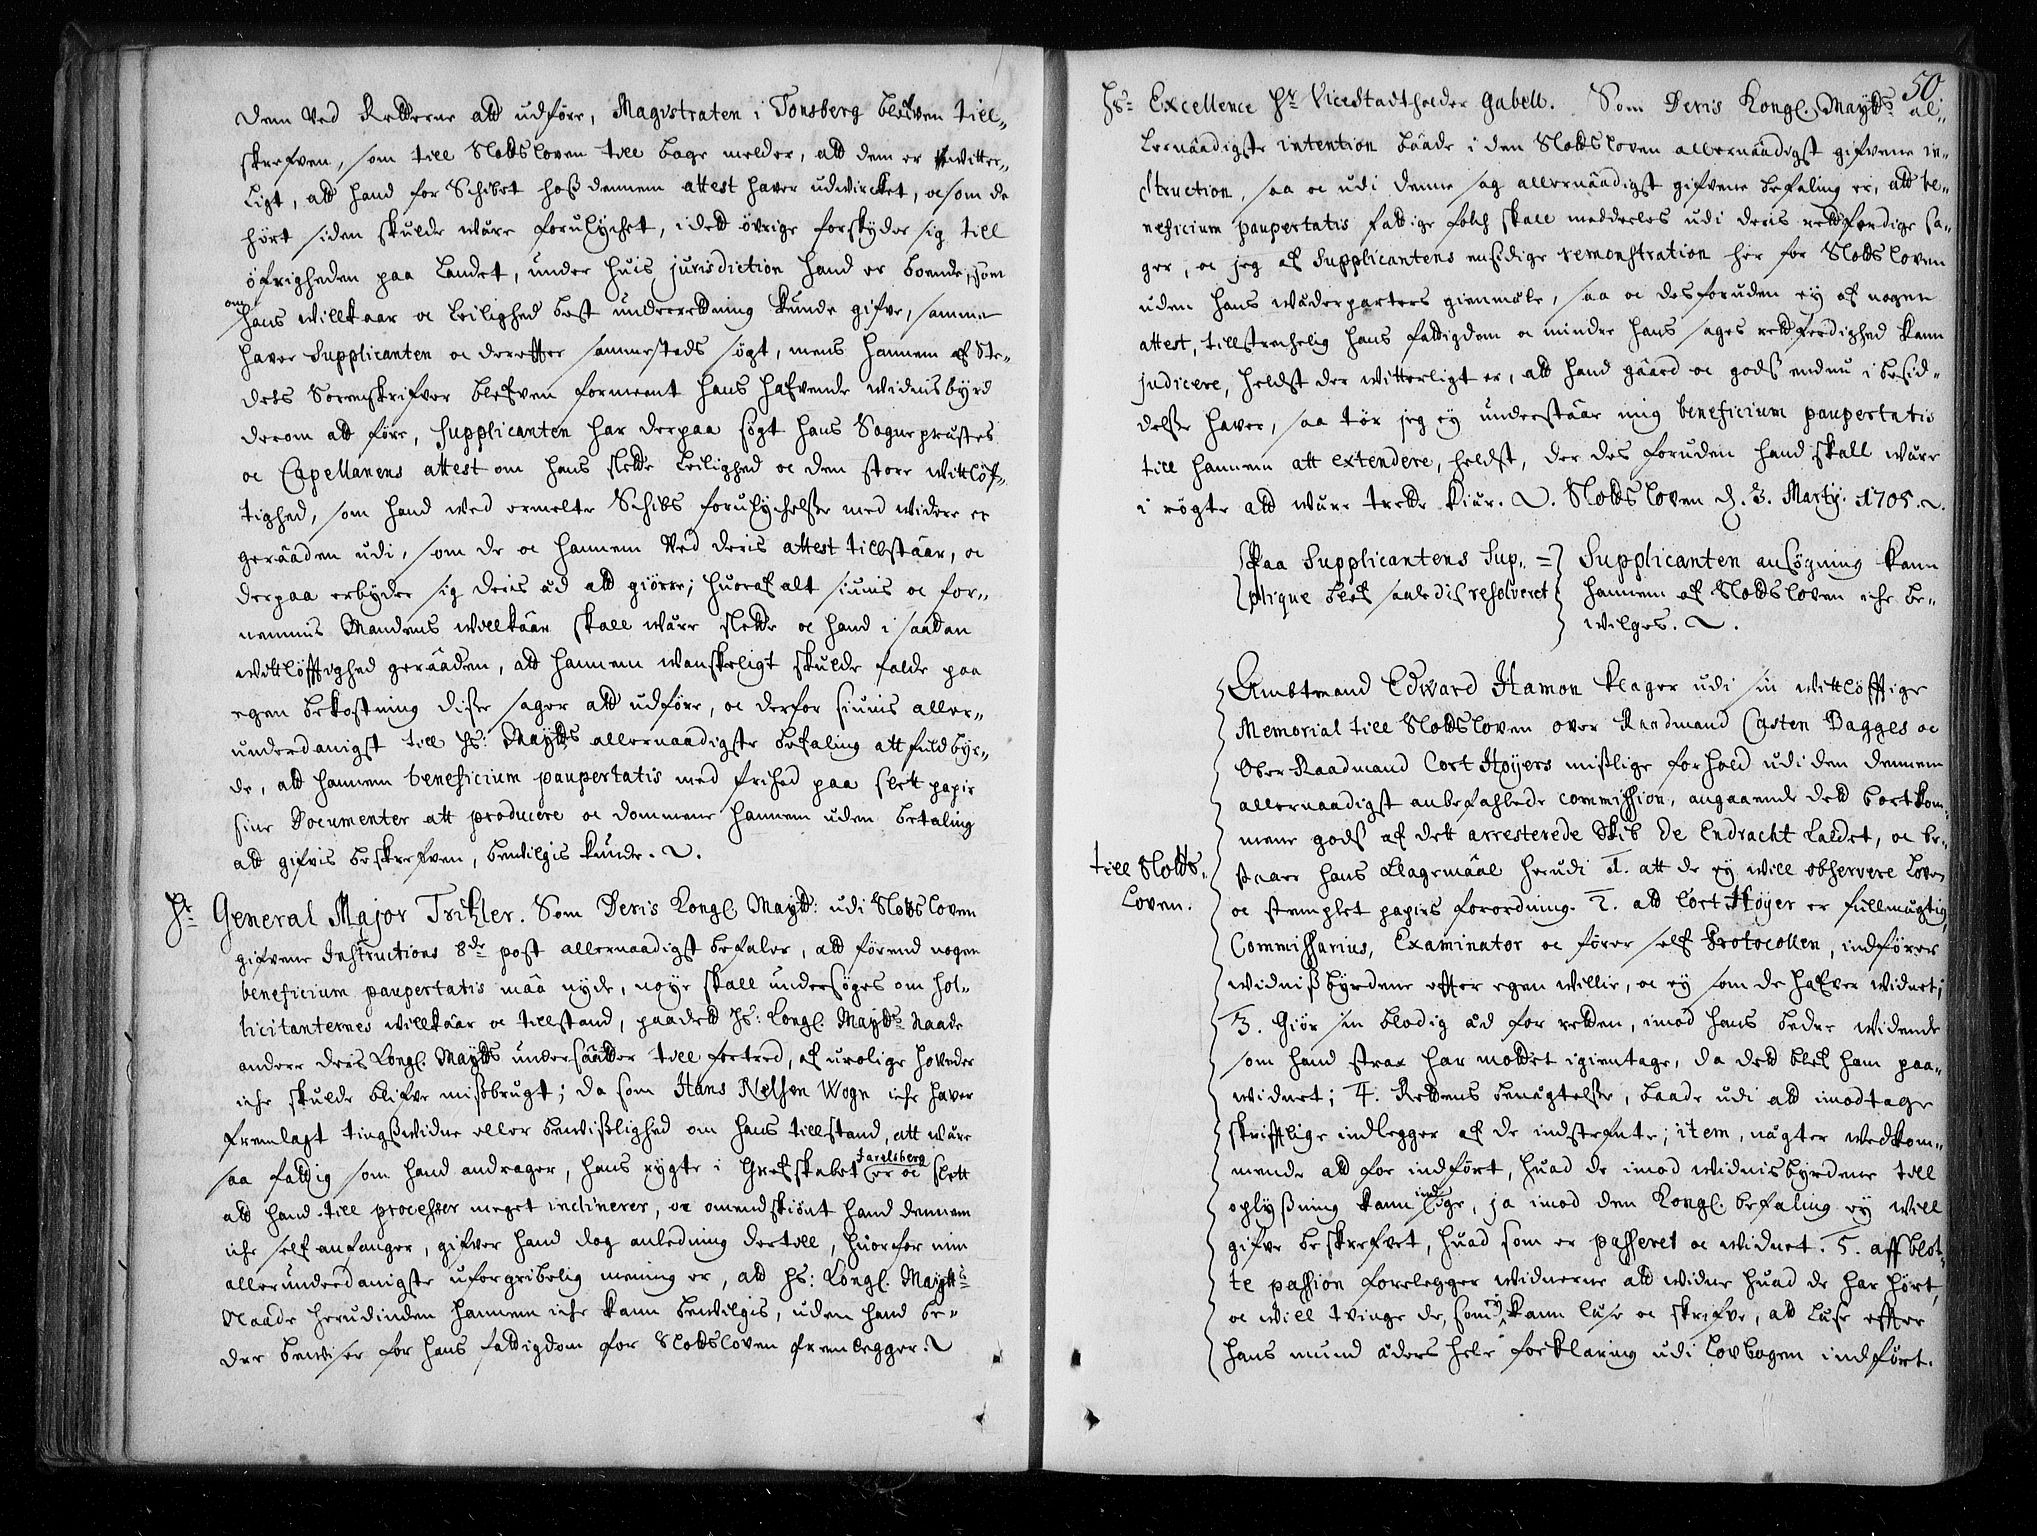 dem Ved Retterne att udføre, Magistraten i Tonsberg blefven till-
skrefven, som till Slotsloven till bage melder, att dem er witter-
Ligt, att hand for Schibet hoß dennem attest haver udwircket, oc som de
hørt siden skulde wære forulychet, i dett øvrige forskyder sig till
øfrigheden paa Landet, under huis jurisdiction hand er boende, som
om hans willkaar oc Leilighed best underretning kunde gifve, samme
haver Supplicanten oc derefter sammesteds søgt, mens hannem af Ste-
dets Sorenskrifver blefven formeent hans hafvende widnisbyrd
derom att føre, Supplicanten har derpaa søgt hans Sogneprestes
oc Capellanens attest om hans slette Leilighed oc den store witløf-
tighed, som hand wed ermelte Schibs forulychelße med widere er
geraaden udi, som de oc hannem Ved deris attest tillstaar, oc
derpaa erbyder sig deris æd att giørre; huoraf alt siunis oc for-
nemmis Mandens willkaar skall wære slette oc hand i saadan
witløfftighed geraaden, att hannem wanskeligt skulde falde paa
egen bekostning diße sager att udføre, oc derfor siunis aller-
underdanigst till Hs: Maytts allernaadigste befaling att fuldbyr-
de, att hannem beneficium paupertatis med frihed paa slett papir
sine Documenter att producere oc dommene hannem uden betaling
att gifvis beskrefven, bevilgis kunde.
Hr General Major Tritzler. Som Deris Kongl. Maytt: udi Slotsloven
gifvene Instructions 8de post allernaadigst befaler, att førend nogen
beneficium paupertatis maa nyde, nøye skall undersøges om Sol-
licitanternes willkaar oc tillstand, paadett Hs: Kongl. Maytts Naade
andere deris Kongl. Maytts undersaatter till fortred, af urolige hoveder
iche skulde blifve mißbrugt; da som Hans Nelsen Wogn iche haver
fremlagt tingßwidne eller bewißlighed om hans tillstand, att wære
saa fattig som hand andrager, hans rygte i Grefskabet Jarelsberg er oc slett
att hand till processer meget inclinerer, oc omendskiønt hand dennem
iche self anfanger, gifver hand dog anledning dertill, huorfor min
allerunderdanigste uforgribelig mening er, att Hs: Kongl. Maytts
Naade herudinden hannem iche kann bevilgis, uden hand be-
dre bewiser for hans fattigdom for Slotsloven fremlegger.
50
Hs: Excellence Hr Vicestadtholder Gabell. Som Deris Kongl. Maytts al-
lernaadigste intention baade i den Slotsloven allernaadigst gifvene in-
struction, saa oc udi denne sag allernaadigst gifvene befaling er, att be-
neficium paupertatis fattige folch skall meddeeles udi deris rettferdige sa-
ger, oc jeg af Supplicantens ensidige remonstration her for Slotsloven
uden hans wederparters gienmæle, saa oc desforuden ey af nogen
attest, tillstrechelig hans fattigdom oc mindre hans sages rettferdighed kann
judicere, heldst der witterligt er, att hand gaard oc gods endnu i besid-
delße haver, saa tør jeg ey understaar mig beneficium paupertatis
till hannem att extendere, heldst, der des foruden hand skall wære
i røgte att wære trette kiær. Slotsloven d. 3. Martij. 1705.
Paa Supplicantens Sup- = Supplicanten ansøgning kann
plique blef saaledis resolveret hannem af Slotsloven iche be-
wilges.
Ambtmand Edward Hamon klager udi sin witløfftige
Memorial till Slotsloven over Raadmand Casten Bagges oc
Ober Raadmand Cort Høyers mißlige forhold udi den dennem
allernaadigst anbefahlede commission, angaaende dett bortkom-
mene gods af dett arresterede Skib De Endracht Ladet, oc be-
till Slotts-
Loven.
staaer hans klagemaal herudi 1. att de ey will observere Loven
oc stemplet papirs forordning. 2. att Cort Høyer er fullmægtig,
Commissarius, Examinator oc fører self Protocollen, indfører
widnißbyrdene effter egen willie, oc ey som de hafver widnet;
3. Giør sin blodig æd for retten, imod hans bedre widende
som hand strax har mottet igientage, da dett blef ham paa-
widnet; 4. Rettens benægtelße, baade udi att imodtage
skrifftlige indlegger af de indstefnte; item, nægter wedkom-
mende att før indført, huad de imod widnisbyrdene till
oplyßning kann ind sige, ja imod den Kongl. befaling ey will
gifve beskrefvet, huad som er passeret oc widnet. 5. aff blot-
te passion forelegger widnerne att widne huad de har hørt,
oc will tvinge de, som ey kann læse oc skrifve, att læse effter
hans mund æders hele forklaring udi Lovbogen indført.